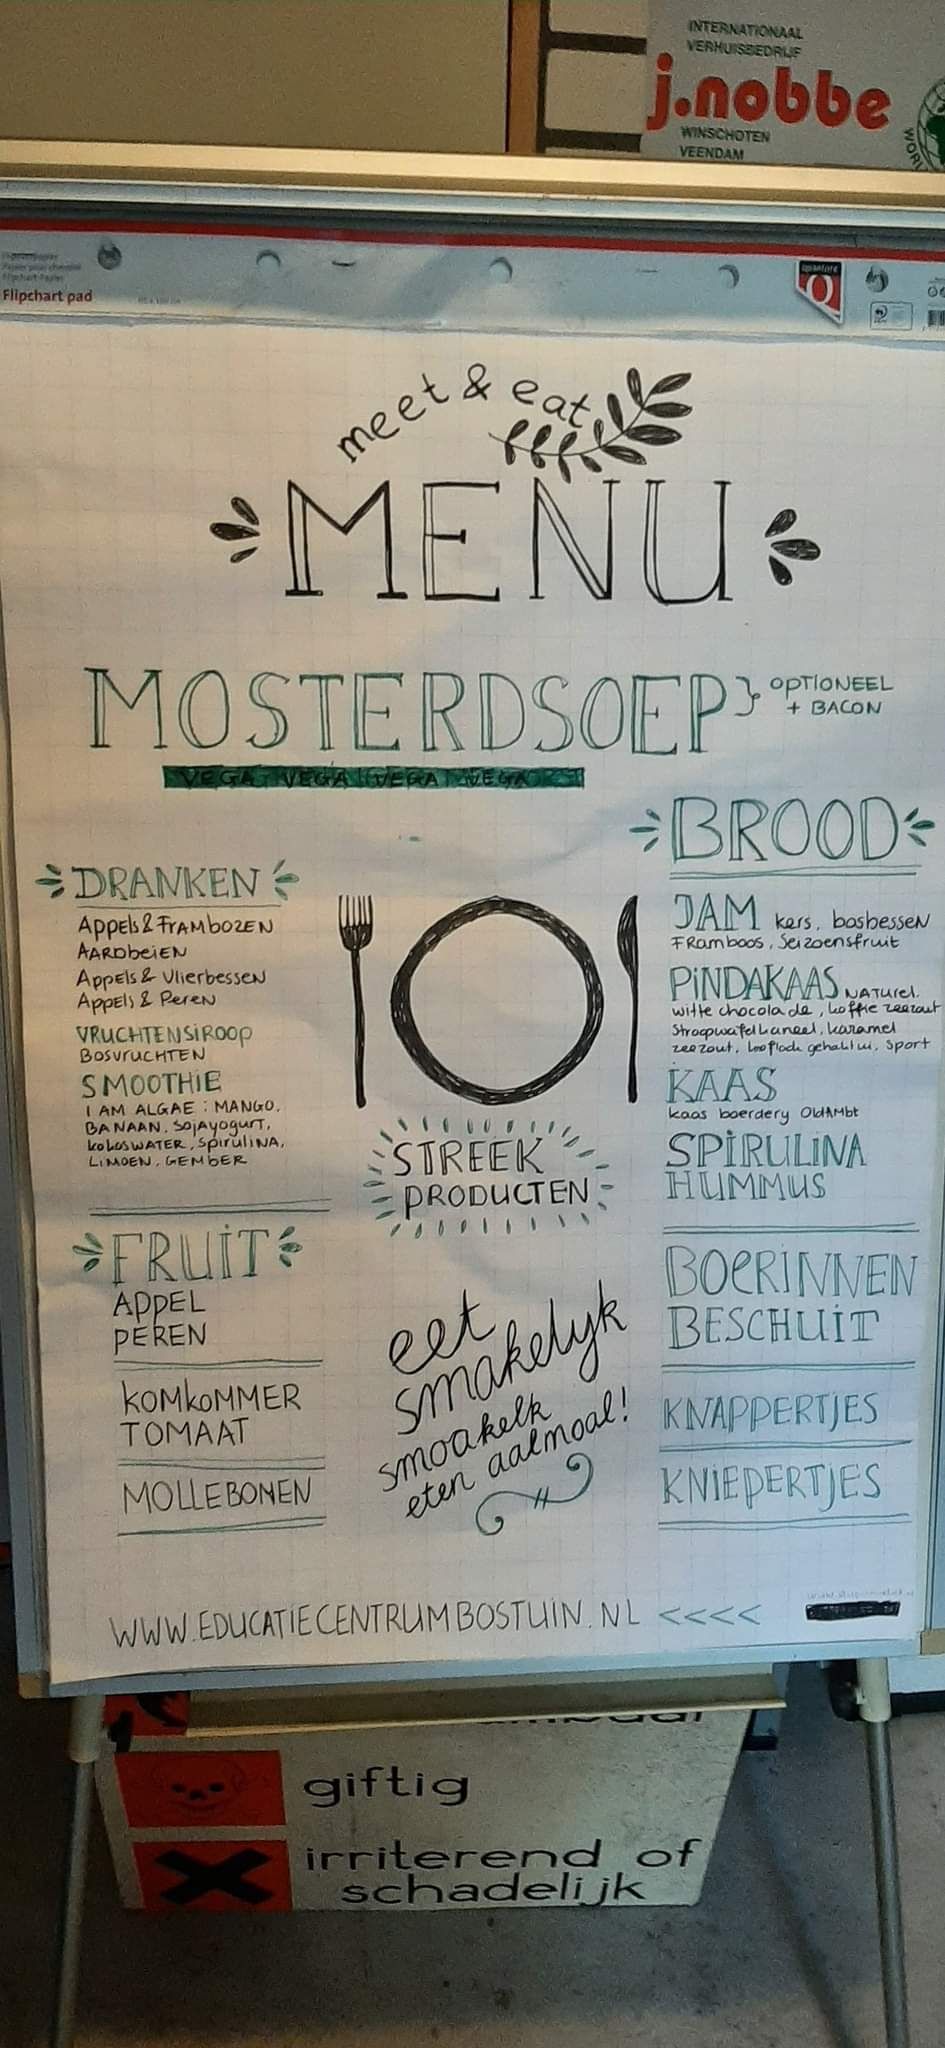 INTERNATIONAAL
VERHUISBEDRIJF
j.nobbe
WINSCHOTEN
VEENDAM
WORL
Flipchart-Papier
Flipchart pad
meet & eat
MENU
MOSTERDSOEP } OPTIONEEL
+ BACON
VEGA VEGA VEGA VEGA
DRANKEN
Appels & FRAMBOZEN
AARDbeiEN
Appels & VlierbesseN
Appels & PereN
VRUCHTENSIROOP
BOSVRUCHTEN
SMOOTHIE
I AM ALGAE : MANGO,
BANAAN, SOJAYOGURT,
KOKOSWATER, SPIRULINA,
LIMOEN, GEMBER
FRUIT
APPEL
PEREN
KOMKOMMER
TOMAAT
MOLLEBONEN
STREEK
PRODUCTEN
eet
smakelyk
smoakelk
eten aalmoal!
BROOD
JAM kers, bosbesseN
FRamboos, Seizoensfruit
PINDAKAAS NATUREL.
witte chocolade, koffie zeezout
Stroopwafel kaneel, karamel
zeezout, Sport
KAAS
kaas boerdery OldAMbt
SPIRULINA
HUMMUS
BOERINNEN
BESCHUIT
KNAPPERTJES
KNIEPERTJES
WWW.EDUCATIECENTRUMBOSTUIN.NL <<<<
giftig
irriterend of
schadelijk